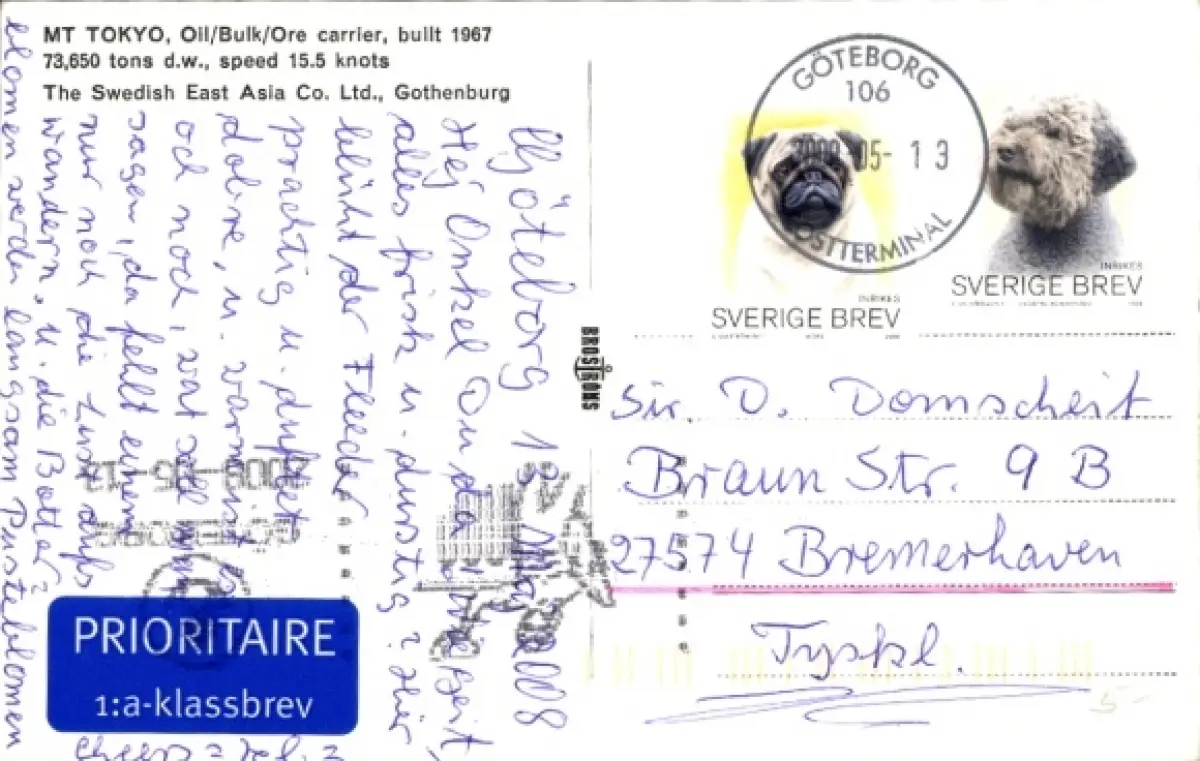 MT TOKYO, Oil/Bulk/Ore carrier, built 1967
73,650 tons d.w., speed 15.5 knots
The Swedish East Asia Co. Ltd., Gothenburg
Göteborg 13 Maj 2008
Hej Onkel
alles frisch u. durstig? Hier
blüht der Flieder
prächtig u. duftet
dolone, u. warm
och noch, wat soll m
sagen, da fehlt einem
nur noch die Lust aufs
wandern, u. die Botte
blomen werde lingsam Pusteblomen
GÖTEBORG
106
2008-05-13
POSTTERMINAL
INRIKES
SVERIGE BREV
INRIKES
SVERIGE BREV
BROSTRÖMS
Sir. D. Domscheit
Braun Str. 9 B
27574 Bremerhaven
Tyskl.
2008-05-13
PRIORITAIRE
1:a-klassbrev
5-